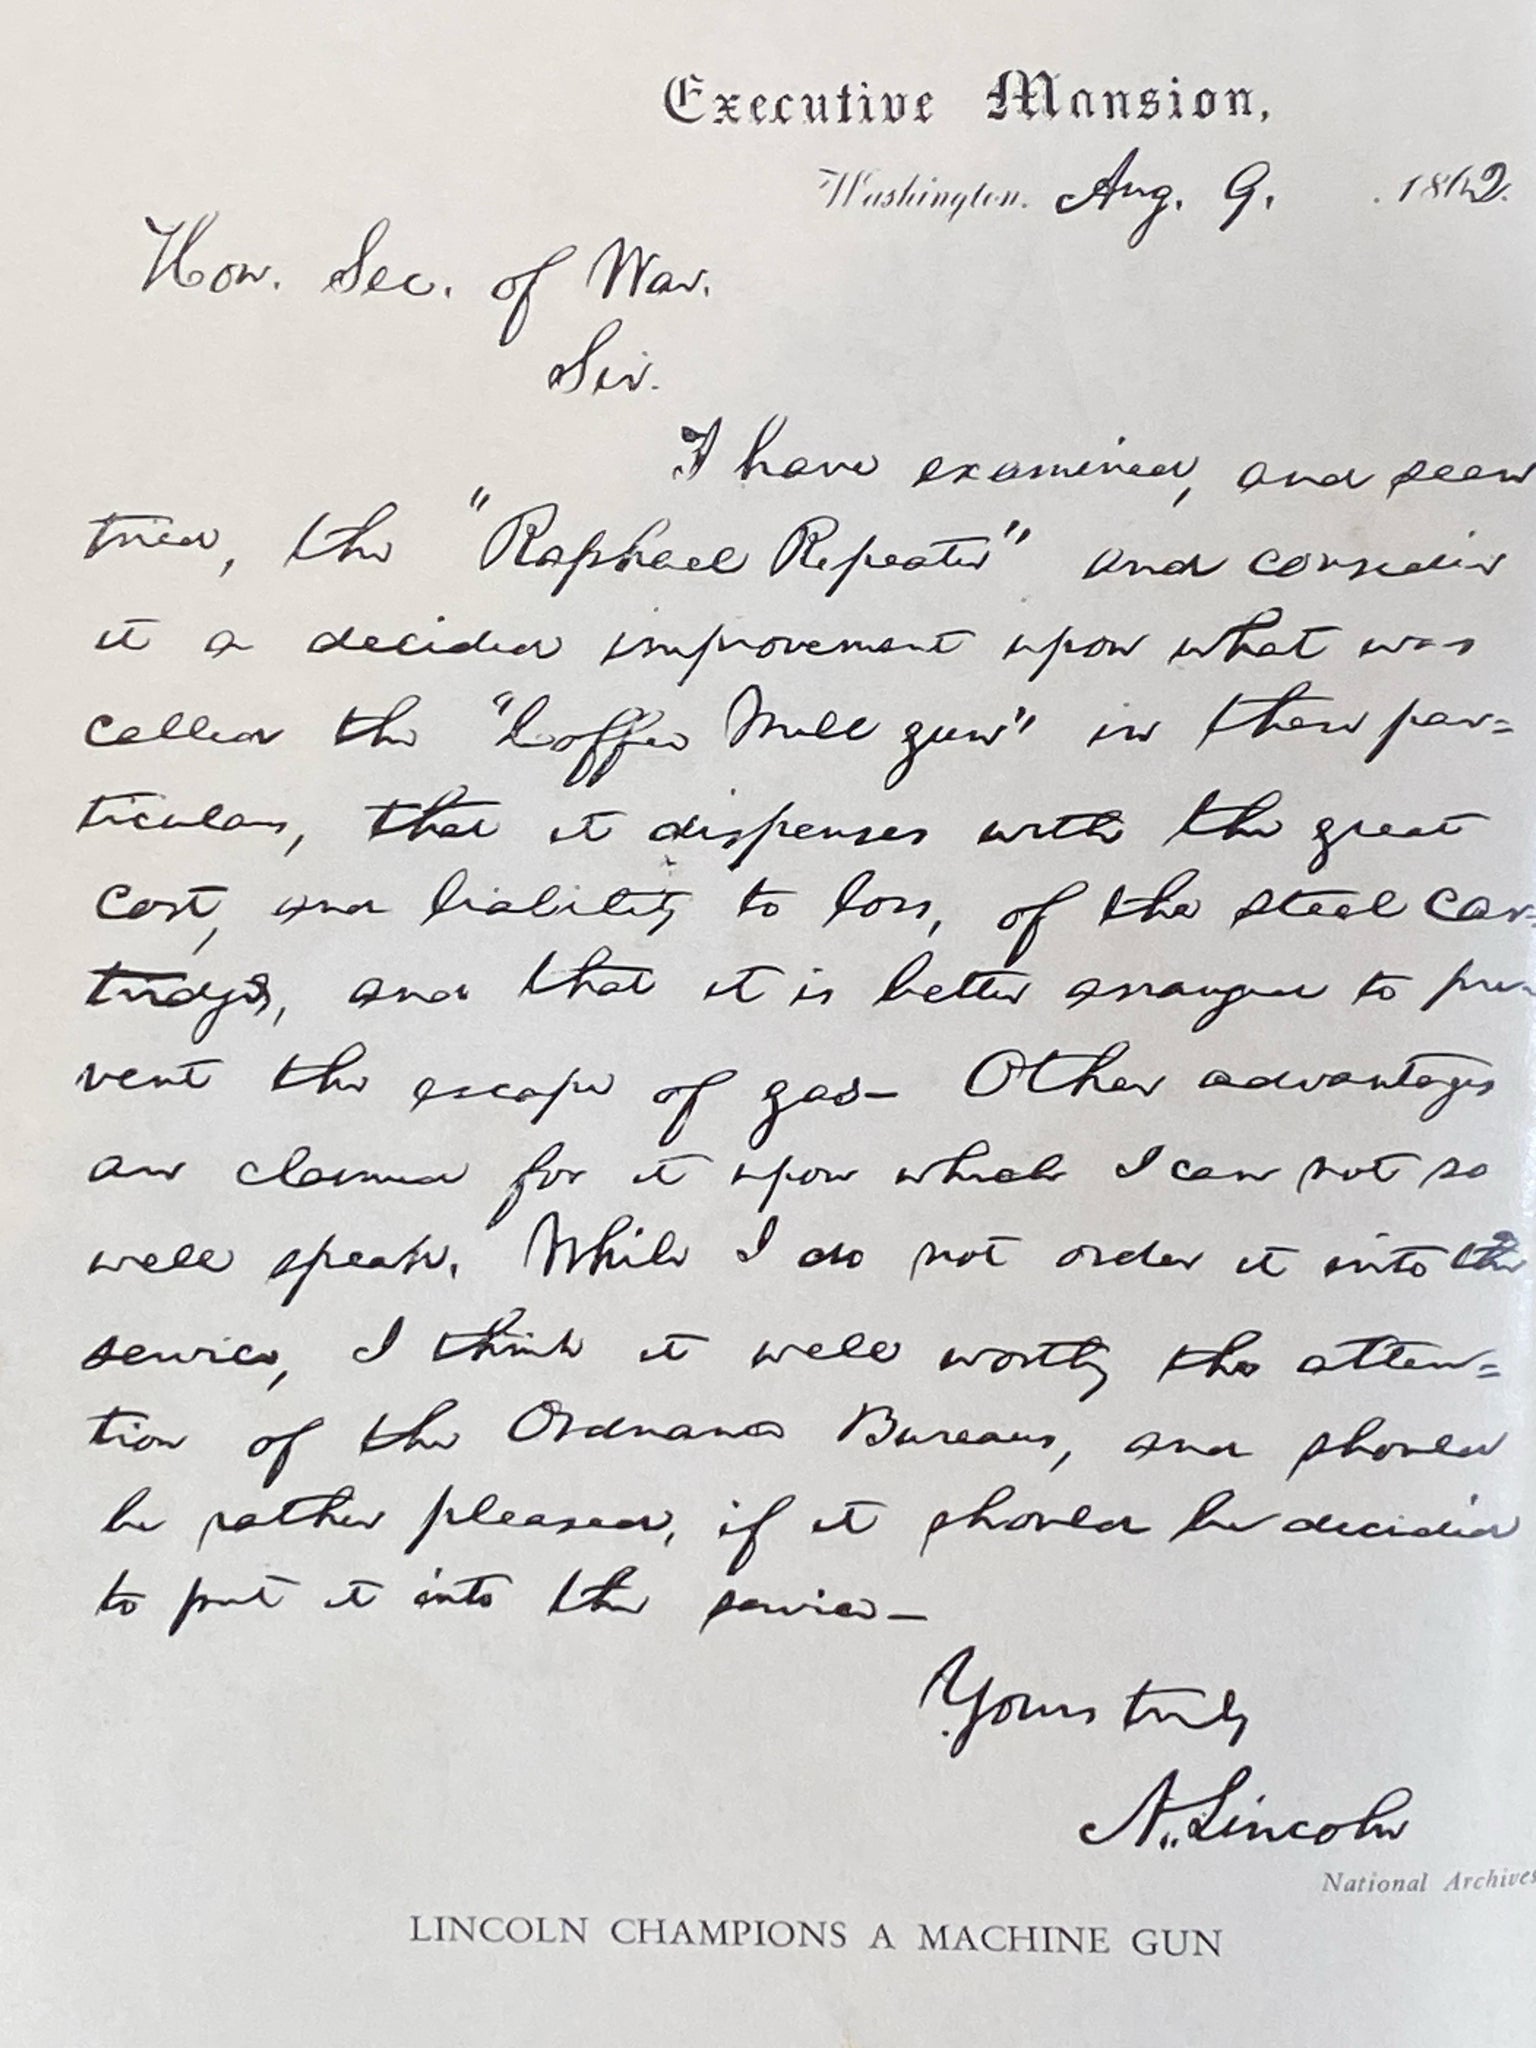 Executive Mansion,
Washington. Aug. 9. . 1862.
Hon. Sec. of War.
Sir.
I have examined, and seen
tried, the "Raphael Repeater" and consider
it a decided improvement upon what was
called the "Coffee Mill gun" in these par=
ticulars, that it dispenses with the great
cost, and liability to loss, of the steel car=
tridges, and that it is better arranged to pre-
vent the escape of gas— Other advantages
are claimed for it upon which I can not so
well speak. While I do not order it into the
service, I think it well worthy the atten=
tion of the Ordnance Bureau, and should
be rather pleased, if it should be decided
to put it into the service—
Yours truly
A. Lincoln
National Archives
LINCOLN CHAMPIONS A MACHINE GUN